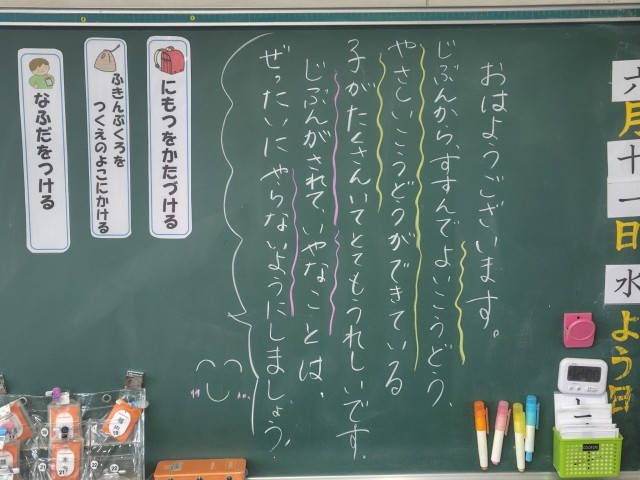 六月十一日水よう日
おはようございます。
じぶんから、すすんでよいこうどう、
やさしいこうどうができている
子がたくさんいてとてもうれしいです。
じぶんがされて、いやなことは、
ぜったいにやらないようにしましょう。
にもつをかたづける
ふきんぶくろを
つくえのよこにかける
なふだをつける